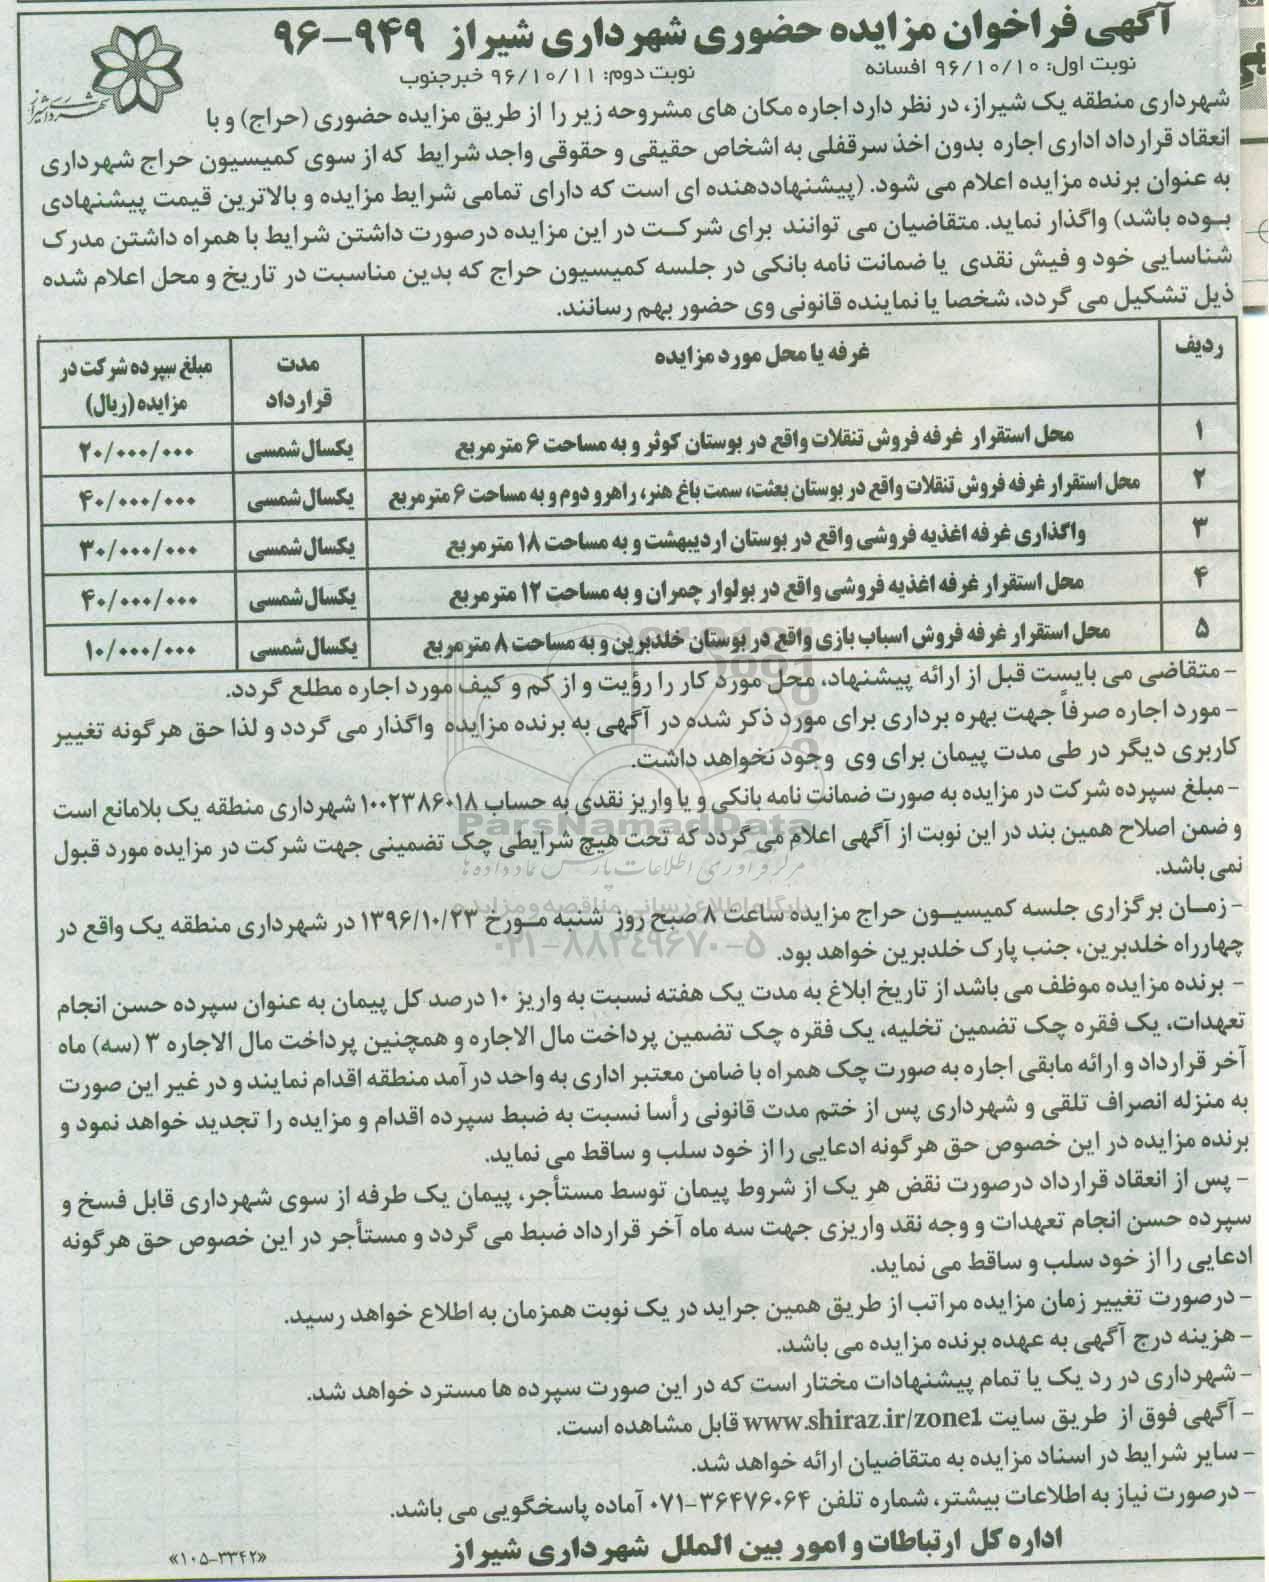 آگهی فراخوان مزایده حضوری شهرداری شیراز ۹۴۹-۹۶
نوبت اول: ۹۶/۱۰/۱۰ افسانه
نوبت دوم: ۹۶/۱۰/۱۱ خبرجنوب
شهرداری منطقه یک شیراز، در نظر دارد اجاره مکان های مشروحه زیر را از طریق مزایده حضوری (حراج) و با
انعقاد قرارداد اداری اجاره بدون اخذ سرقفلی به اشخاص حقیقی و حقوقی واجد شرایط که از سوی کمیسیون حراج شهرداری
به عنوان برنده مزایده اعلام می شود. (پیشنهاددهنده ای است که دارای تمامی شرایط مزایده و بالاترین قیمت پیشنهادی
بوده باشد) واگذار نماید. متقاضیان می توانند برای شرکت در این مزایده درصورت داشتن شرایط با همراه داشتن مدرک
شناسایی خود و فیش نقدی یا ضمانت نامه بانکی در جلسه کمیسیون حراج که بدین مناسبت در تاریخ و محل اعلام شده
ذیل تشکیل می گردد، شخصا یا نماینده قانونی وی حضور بهم رسانند.
ردیف غرفه یا محل مورد مزایده مدت قرارداد مبلغ سپرده شرکت در مزایده (ریال)
۱ محل استقرار غرفه فروش تنقلات واقع در بوستان کوثر و به مساحت ۶ مترمربع یکسال شمسی ۲۰/۰۰۰/۰۰۰
۲ محل استقرار غرفه فروش تنقلات واقع در بوستان بعثت، سمت باغ هنر، راهرو دوم و به مساحت ۶ مترمربع یکسال شمسی ۴۰/۰۰۰/۰۰۰
۳ واگذاری غرفه اغذیه فروشی واقع در بوستان اردیبهشت و به مساحت ۱۸ مترمربع یکسال شمسی ۳۰/۰۰۰/۰۰۰
۴ محل استقرار غرفه اغذیه فروشی واقع در بولوار چمران و به مساحت ۱۲ مترمربع یکسال شمسی ۴۰/۰۰۰/۰۰۰
۵ محل استقرار غرفه فروش اسباب بازی واقع در بوستان خلدبرین و به مساحت ۸ مترمربع یکسال شمسی ۱۰/۰۰۰/۰۰۰
- متقاضی می بایست قبل از ارائه پیشنهاد، محل مورد کار را رؤیت و از کم و کیف مورد اجاره مطلع گردد.
- مورد اجاره صرفاً جهت بهره برداری برای مورد ذکر شده در آگهی به برنده مزایده واگذار می گردد و لذا حق هرگونه تغییر
کاربری دیگر در طی مدت پیمان برای وی وجود نخواهد داشت.
- مبلغ سپرده شرکت در مزایده به صورت ضمانت نامه بانکی و یا واریز نقدی به حساب ۱۰۰۲۳۸۶۰۱۸ شهرداری منطقه یک بلامانع است
و ضمن اصلاح همین بند در این نوبت از آگهی اعلام می گردد که تحت هیچ شرایطی چک تضمینی جهت شرکت در مزایده مورد قبول
نمی باشد.
ParsNamadData
مرکز فرآوری اطلاعات پارس نماد داده ها
پایگاه اطلاع رسانی مناقصه و مزایده
۰۲۱-۸۸۳۴۹۶۷۰-۵
- زمان برگزاری جلسه کمیسیون حراج مزایده ساعت ۸ صبح روز شنبه مورخ ۱۳۹۶/۱۰/۲۳ در شهرداری منطقه یک واقع در
چهارراه خلدبرین، جنب پارک خلدبرین خواهد بود.
- برنده مزایده موظف می باشد از تاریخ ابلاغ به مدت یک هفته نسبت به واریز ۱۰ درصد کل پیمان به عنوان سپرده حسن انجام
تعهدات، یک فقره چک تضمین تخلیه، یک فقره چک تضمین پرداخت مال الاجاره و همچنین پرداخت مال الاجاره ۳ (سه) ماه
آخر قرارداد و ارائه مابقی اجاره به صورت چک همراه با ضامن معتبر اداری به واحد درآمد منطقه اقدام نمایند و در غیر این صورت
به منزله انصراف تلقی و شهرداری پس از ختم مدت قانونی رأسا نسبت به ضبط سپرده اقدام و مزایده را تجدید خواهد نمود و
برنده مزایده در این خصوص حق هرگونه ادعایی را از خود سلب و ساقط می نماید.
- پس از انعقاد قرارداد درصورت نقض هر یک از شروط پیمان توسط مستأجر، پیمان یک طرفه از سوی شهرداری قابل فسخ و
سپرده حسن انجام تعهدات و وجه نقد واریزی جهت سه ماه آخر قرارداد ضبط می گردد و مستأجر در این خصوص حق هرگونه
ادعایی را از خود سلب و ساقط می نماید.
- درصورت تغییر زمان مزایده مراتب از طریق همین جراید در یک نوبت همزمان به اطلاع خواهد رسید.
- هزینه درج آگهی به عهده برنده مزایده می باشد.
- شهرداری در رد یک یا تمام پیشنهادات مختار است که در این صورت سپرده ها مسترد خواهد شد.
- آگهی فوق از طریق سایت www.shiraz.ir/zone1 قابل مشاهده است.
- سایر شرایط در اسناد مزایده به متقاضیان ارائه خواهد شد.
- درصورت نیاز به اطلاعات بیشتر، شماره تلفن ۳۶۴۷۶۰۶۴-۰۷۱ آماده پاسخگویی می باشد.
اداره کل ارتباطات و امور بین الملل شهرداری شیراز
«۱۰۵-۳۳۴۲»